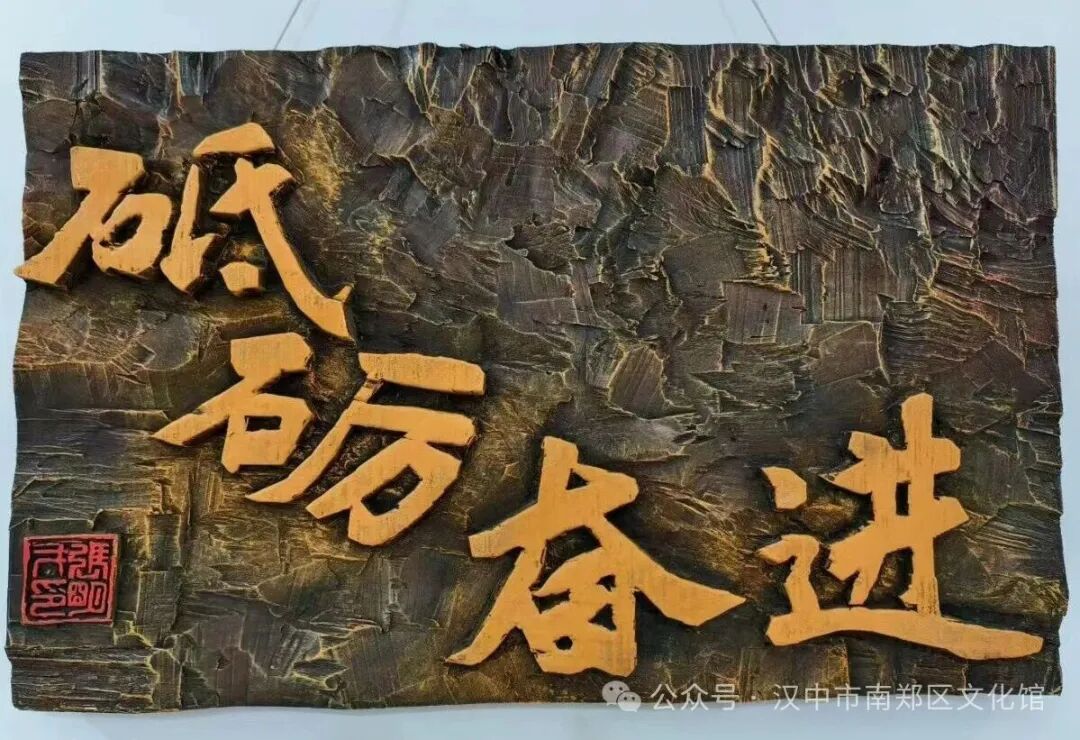 砥砺奋进
公众号·汉中市南郑区文化馆